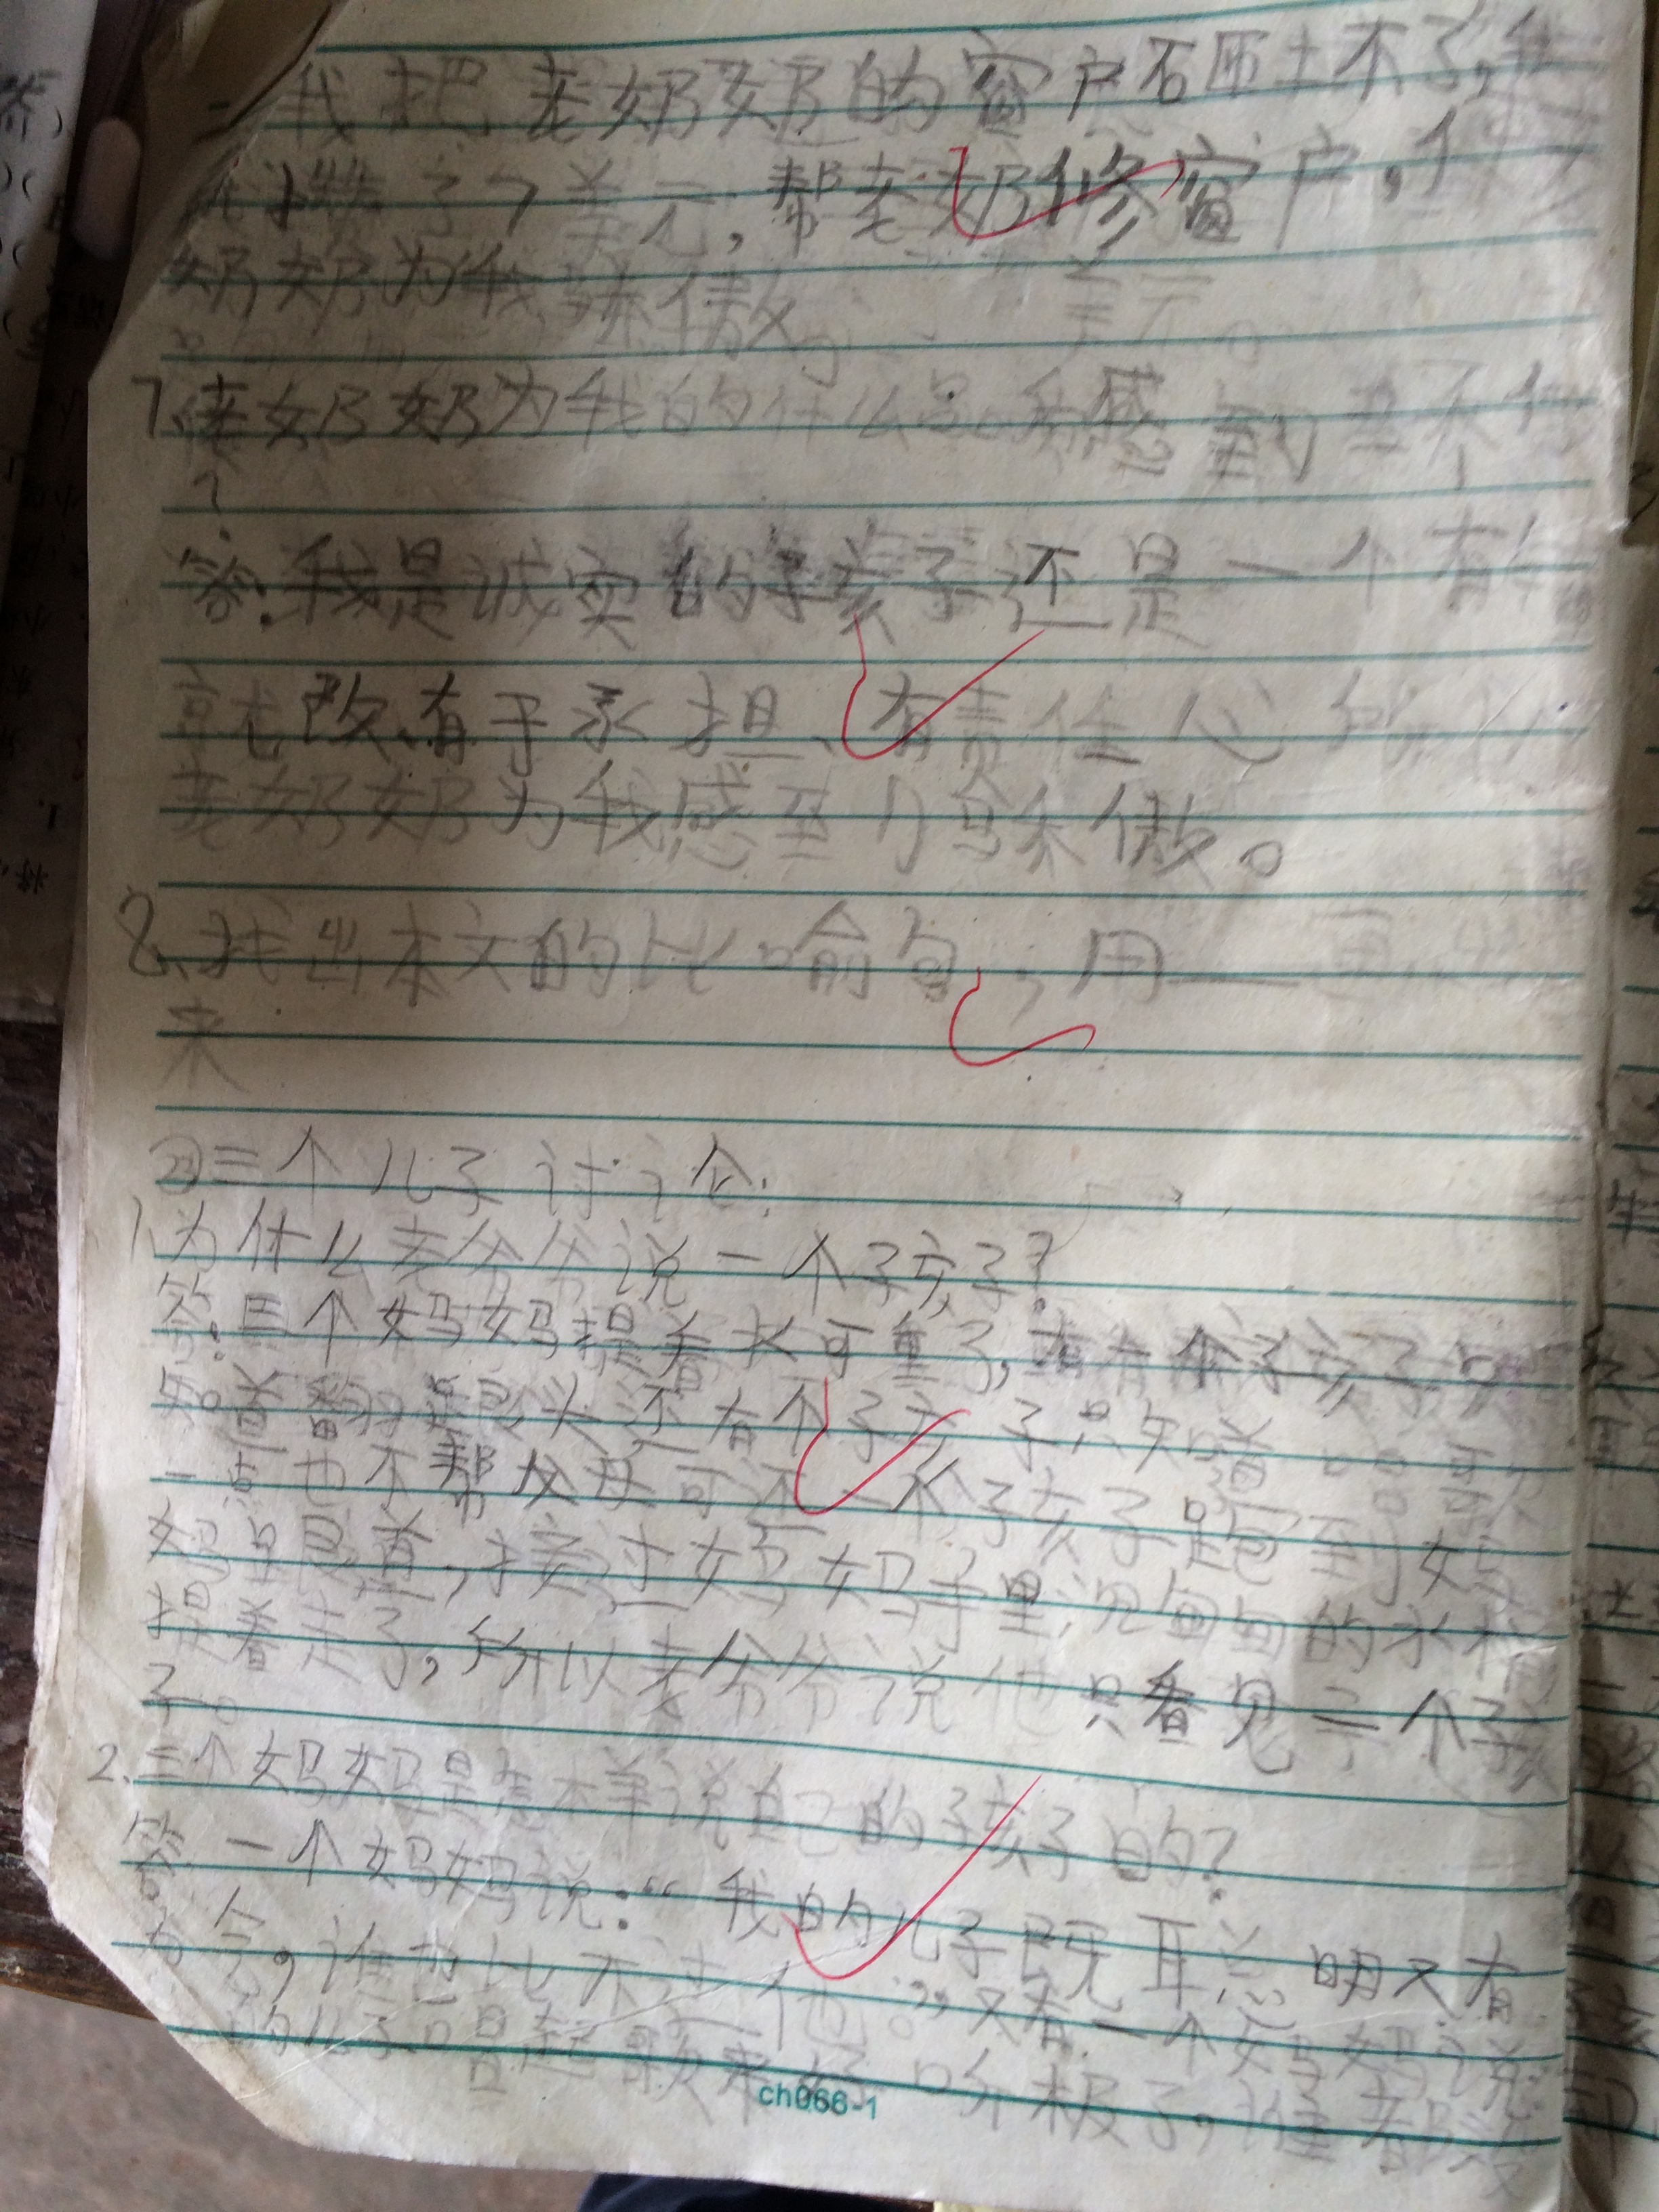 我把老奶奶的窗户砸坏了,我
就攒了7美元,帮老奶修窗户,
奶奶为我骄傲。
7.佬奶奶为我的什么品质感到骄傲
?
答:我是诚实的孩子还是一个有
就改、有于承担、有责任心的
老奶奶为我感到骄傲。
8、找出本文的比喻句,用——画出
来
㉓三个儿子讨论:
1、为什么老爷爷说一个孩子?
答:三个妈妈提着水可重了,有个孩子只
知道翻跟头还有个孩子只知道唱歌
一点也不帮父母可还一个孩子跑到妈
妈跟前,接过妈妈手里沉甸甸的水桶
提着走了,所以老爷爷说他只看见一个孩
子。
2、三个妈妈是怎样说自己的孩子的?
答:一个妈妈说:“我的儿子既聪明又有
力气,谁也比不过他。”又有一个妈妈说:
的儿子唱起歌来好听极了,谁都没
ch066-1